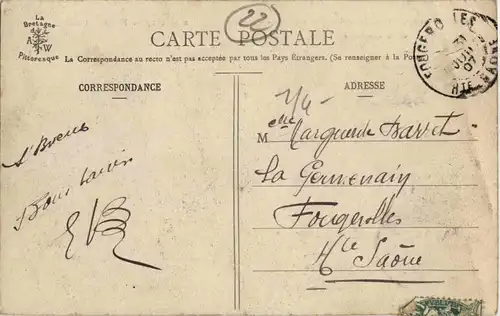 La
Bretagne
A W
Pittoresque
22
CARTE POSTALE
La Correspondance au recto n'est pas acceptée par tous les Pays Étrangers. (Se renseigner à la Po
CORRESPONDANCE
ADRESSE
FOUGEROLLES
31
07
HTE SAONE
St Brieuc
Bons baisers
Melle Marguerite
La
Fougerolles
Hte Saône